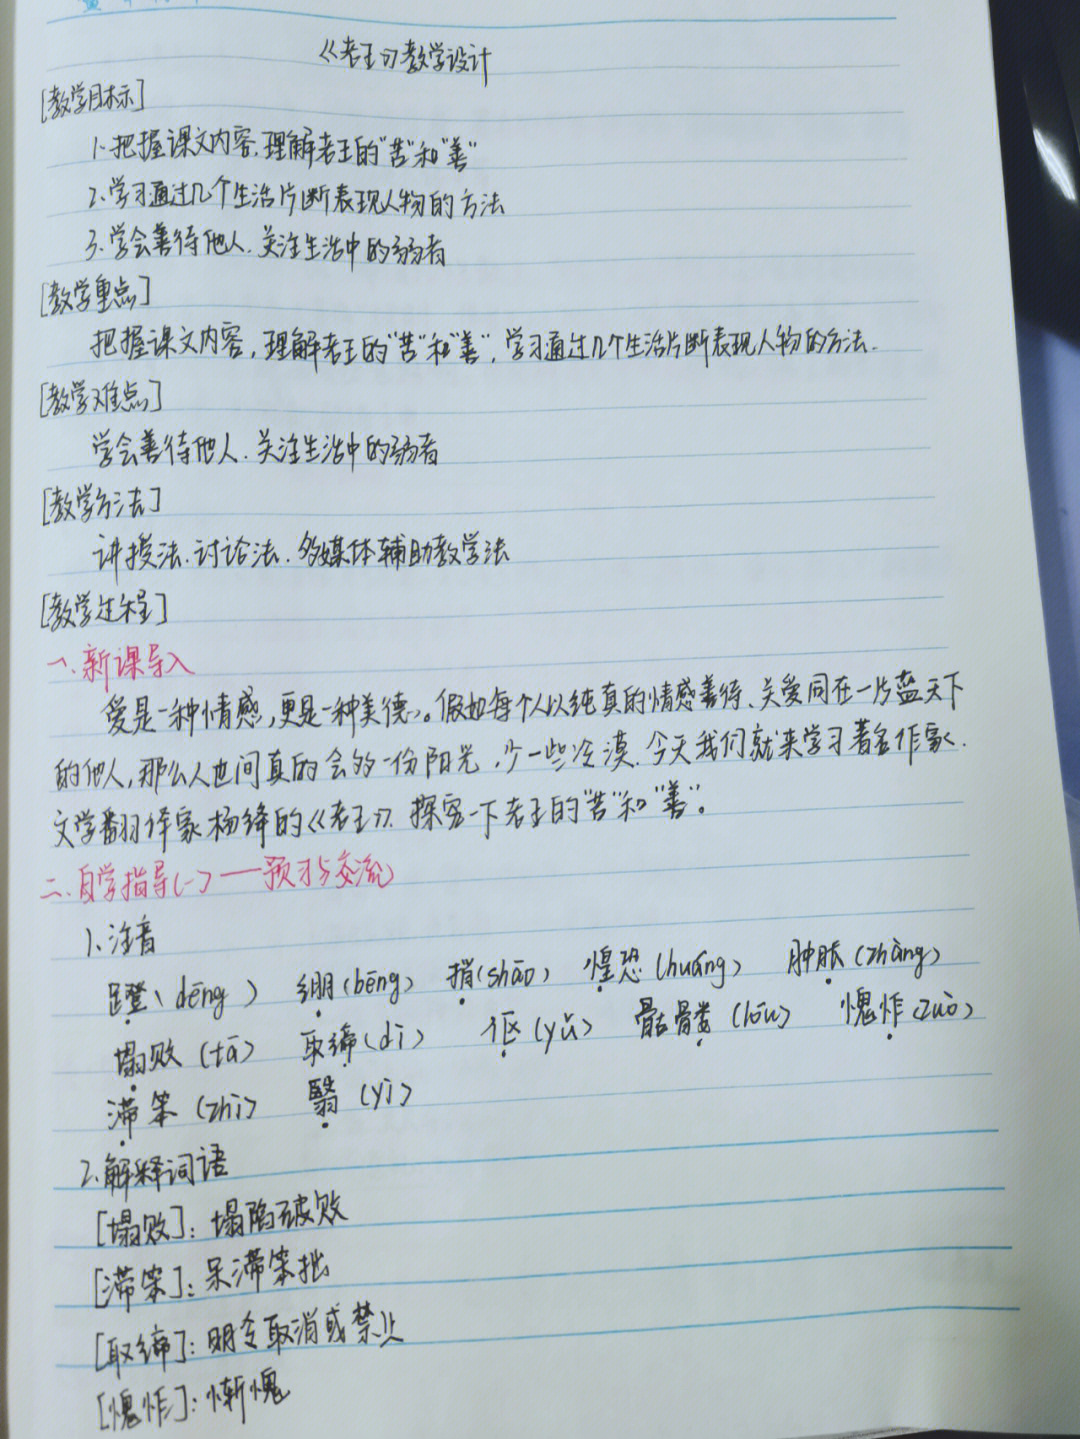 《老王》教学设计
[教学目标]
1.把握课文内容,理解老王的"苦"和"善"
2.学习通过几个生活片断表现人物的方法
3.学会善待他人.关注生活中的弱者
[教学重点]
把握课文内容,理解老王的"苦"和"善",学习通过几个生活片断表现人物的方法.
[教学难点]
学会善待他人.关注生活中的弱者
[教学方法]
讲授法.讨论法.多媒体辅助教学法
[教学过程]
一.新课导入
爱是一种情感,更是一种美德。假如每个人以纯真的情感善待、关爱同在一片蓝天下
的他人,那么人世间真的会多一份阳光,少一些冷漠.今天我们就来学习著名作家.
文学翻译家杨绛的《老王》.探究一下老王的"苦"和"善"。
二.自学指导(一)——预习与交流
1.注音
蹬(dēng) 绷(bēng) 捎(shāo) 惶恐(huáng) 肿胀(zhàng)
塌败(tā) 取缔(dì) 伛(yǔ) 骷髅(lóu) 愧怍(zuò)
滞笨(zhì) 翳(yì)
2.解释词语
[塌败]:塌陷破败
[滞笨]:呆滞笨拙
[取缔]:明令取消或禁止
[愧怍]:惭愧